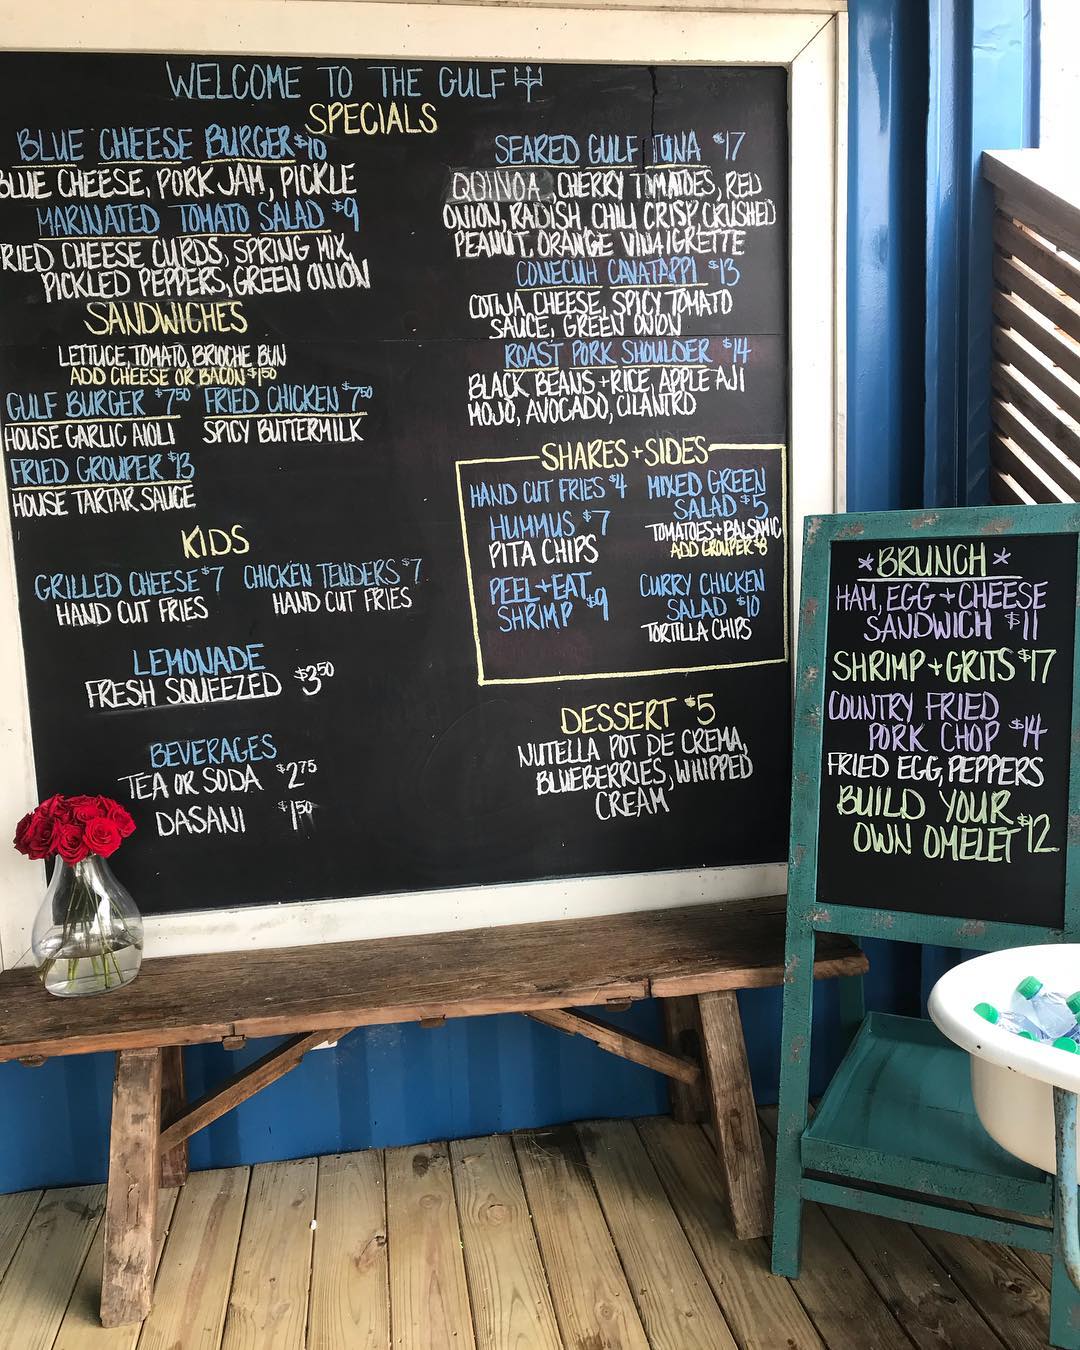 WELCOME TO THE GULF
SPECIALS
BLUE CHEESE BURGER $10
BLUE CHEESE, PORK JAM, PICKLE
MARINATED TOMATO SALAD $9
FRIED CHEESE CURDS, SPRING MIX,
PICKLED PEPPERS, GREEN ONION
SANDWICHES
LETTUCE, TOMATO, BRIOCHE BUN
ADD CHEESE OR BACON $1.50
GULF BURGER $7.50 FRIED CHICKEN $7.50
HOUSE GARLIC AIOLI SPICY BUTTERMILK
FRIED GROUPER $13
HOUSE TARTAR SAUCE
KIDS
GRILLED CHEESE $7 CHICKEN TENDERS $7
HAND CUT FRIES HAND CUT FRIES
LEMONADE
FRESH SQUEEZED $3.50
BEVERAGES
TEA OR SODA $2.75
DASANI $1.50
SEARED GULF TUNA $17
QQINOA, CHERRY TOMATOES, RED
ONION, RADISH, CHILI CRISP, CRUSHED
PEANUT, ORANGE VINAIGRETTE
CONECUH CAVATAPPI $13
COTIJA CHEESE, SPICY TOMATO
SAUCE, GREEN ONION
ROAST PORK SHOULDER $14
BLACK BEANS + RICE, APPLE AJI
MOJO, AVOCADO, CILANTRO
SHARES + SIDES
HAND CUT FRIES $4
HUMMUS $7
PITA CHIPS
PEEL + EAT
SHRIMP $9
MIXED GREEN
SALAD $5
TOMATOES + BALSAMIC
ADD GROUPER $8
CURRY CHICKEN
SALAD $10
TORTILLA CHIPS
DESSERT $5
NUTELLA POT DE CREMA,
BLUEBERRIES, WHIPPED
CREAM
*BRUNCH*
HAM, EGG + CHEESE
SANDWICH $11
SHRIMP + GRITS $17
COUNTRY FRIED
PORK CHOP $14
FRIED EGG, PEPPERS
BUILD YOUR
OWN OMELET $12